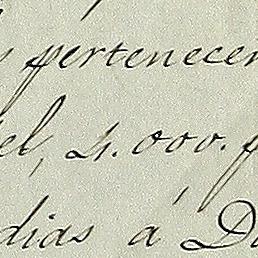 pertenecen
el, 4.000. f
dias á D